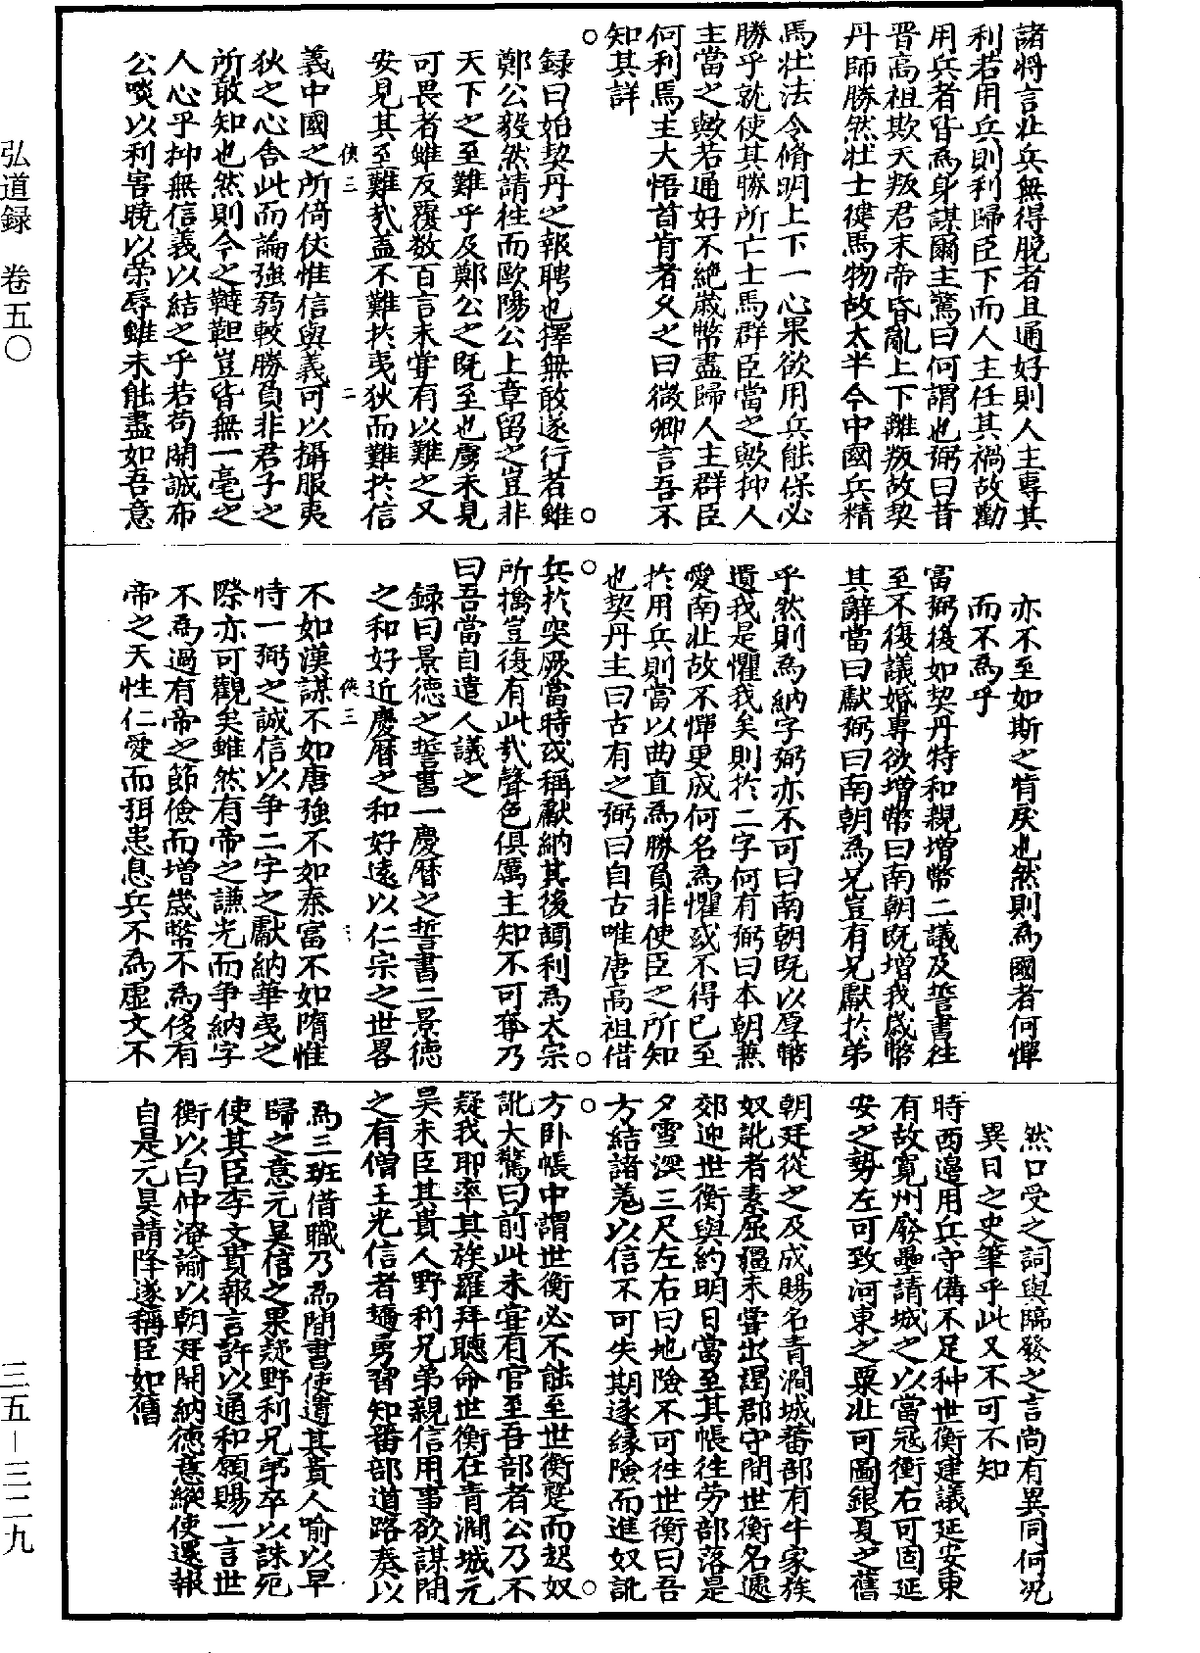 弘道録　卷五〇
三五－三二九
諸將言北兵無得脱者且通好則人主專其
利若用兵則利歸臣下而人主任其禍故勸
用兵者皆爲身謀爾主驚曰何謂也弼曰昔
晋高祖欺天叛君末帝昏亂上下離叛故契
丹師勝然壯士健馬物故太半今中國兵精
馬壯法令脩明上下一心果欲用兵能保必
勝乎就使其勝所亡士馬群臣當之歟抑人
主當之歟若通好不絶歲幣盡歸人主群臣
何利焉主大悟首肯者久之曰微卿言吾不
知其詳
録曰始契丹之報聘也擇無敢遂行者雖
鄭公毅然請往而歐陽公上章留之豈非
天下之至難乎及鄭公之既至也虜未見
可畏者雖反覆数百言未甞有以難之又
安見其至難哉蓋不難於夷狄而難於信
俠三　二
義中國之所倚仗惟信與義可以攝服夷
狄之心舎此而論強弱較勝負非君子之
所敢知也然則今之韃靼豈皆無一毫之
人心乎抑無信義以結之乎若苟開誠布
公啖以利害曉以荣辱雖未能盡如吾意
亦不至如斯之背戾也然則為國者何憚
而不為乎
富弼後如契丹特和親增幣二議及誓書往
至不復議婚專欲增幣曰南朝既增我歲幣
其辭當曰獻弼曰南朝為兄豈有兄獻於弟
乎然則為納字弼亦不可曰南朝既以厚幣
遺我是懼我矣則於二字何有弼曰本朝兼
愛南北故不憚更成何名為懼或不得已至
於用兵則當以曲直為勝負非使臣之所知
也契丹主曰古有之弼曰自古唯唐高祖借
兵於突厥當時或稱獻納其後頡利為太宗
所擒豈復有此哉聲色俱厲主知不可奪乃
曰吾當自遣人議之
録曰景德之誓書一慶曆之誓書二景德
之和好近慶曆之和好遠以仁宗之世畧
俠三
不如漢謀不如唐強不如秦富不如隋惟
恃一弼之誠信以争二字之獻納華夷之
際亦可觀矣雖然有帝之謙光而争納字
不為過有帝之節儉而增歲幣不為侈有
帝之天性仁愛而弭患息兵不為虚文不
然口受之詞與臨發之言尚有異同何况
異日之史筆乎此又不可不知
時西邊用兵守備不足种世衡建議延安東
有故寛州廢壘請城之以當冦衝右可固延
安之勢左可致河東之粟北可圖銀夏之舊
朝廷從之及成賜名青澗城蕃部有牛家族
奴訛者素屈彊未甞出謁郡守聞世衡名遽
郊迎世衡與約明日當至其帳往劳部落是
夕雪深三尺左右曰地險不可往世衡曰吾
方結諸羗以信不可失期遂緣險而進奴訛
方卧帳中謂世衡必不能至世衡蹙而起奴
訛大驚曰前此未甞有官至吾部者公乃不
疑我耶率其族羅拜聽命世衡在青澗城元
昊未臣其貴人野利兄弟親信用事欲謀間
之有僧王光信者趫勇習知蕃部道路奏以
為三班借職乃為間書使遺其貴人喻以早
歸之意元昊信之果疑野利兄弟卒以誅死
使其臣李文貴報言許以通和願賜一言世
衡以白仲淹諭以朝廷開納德意縱使還報
自是元昊請降遂稱臣如舊